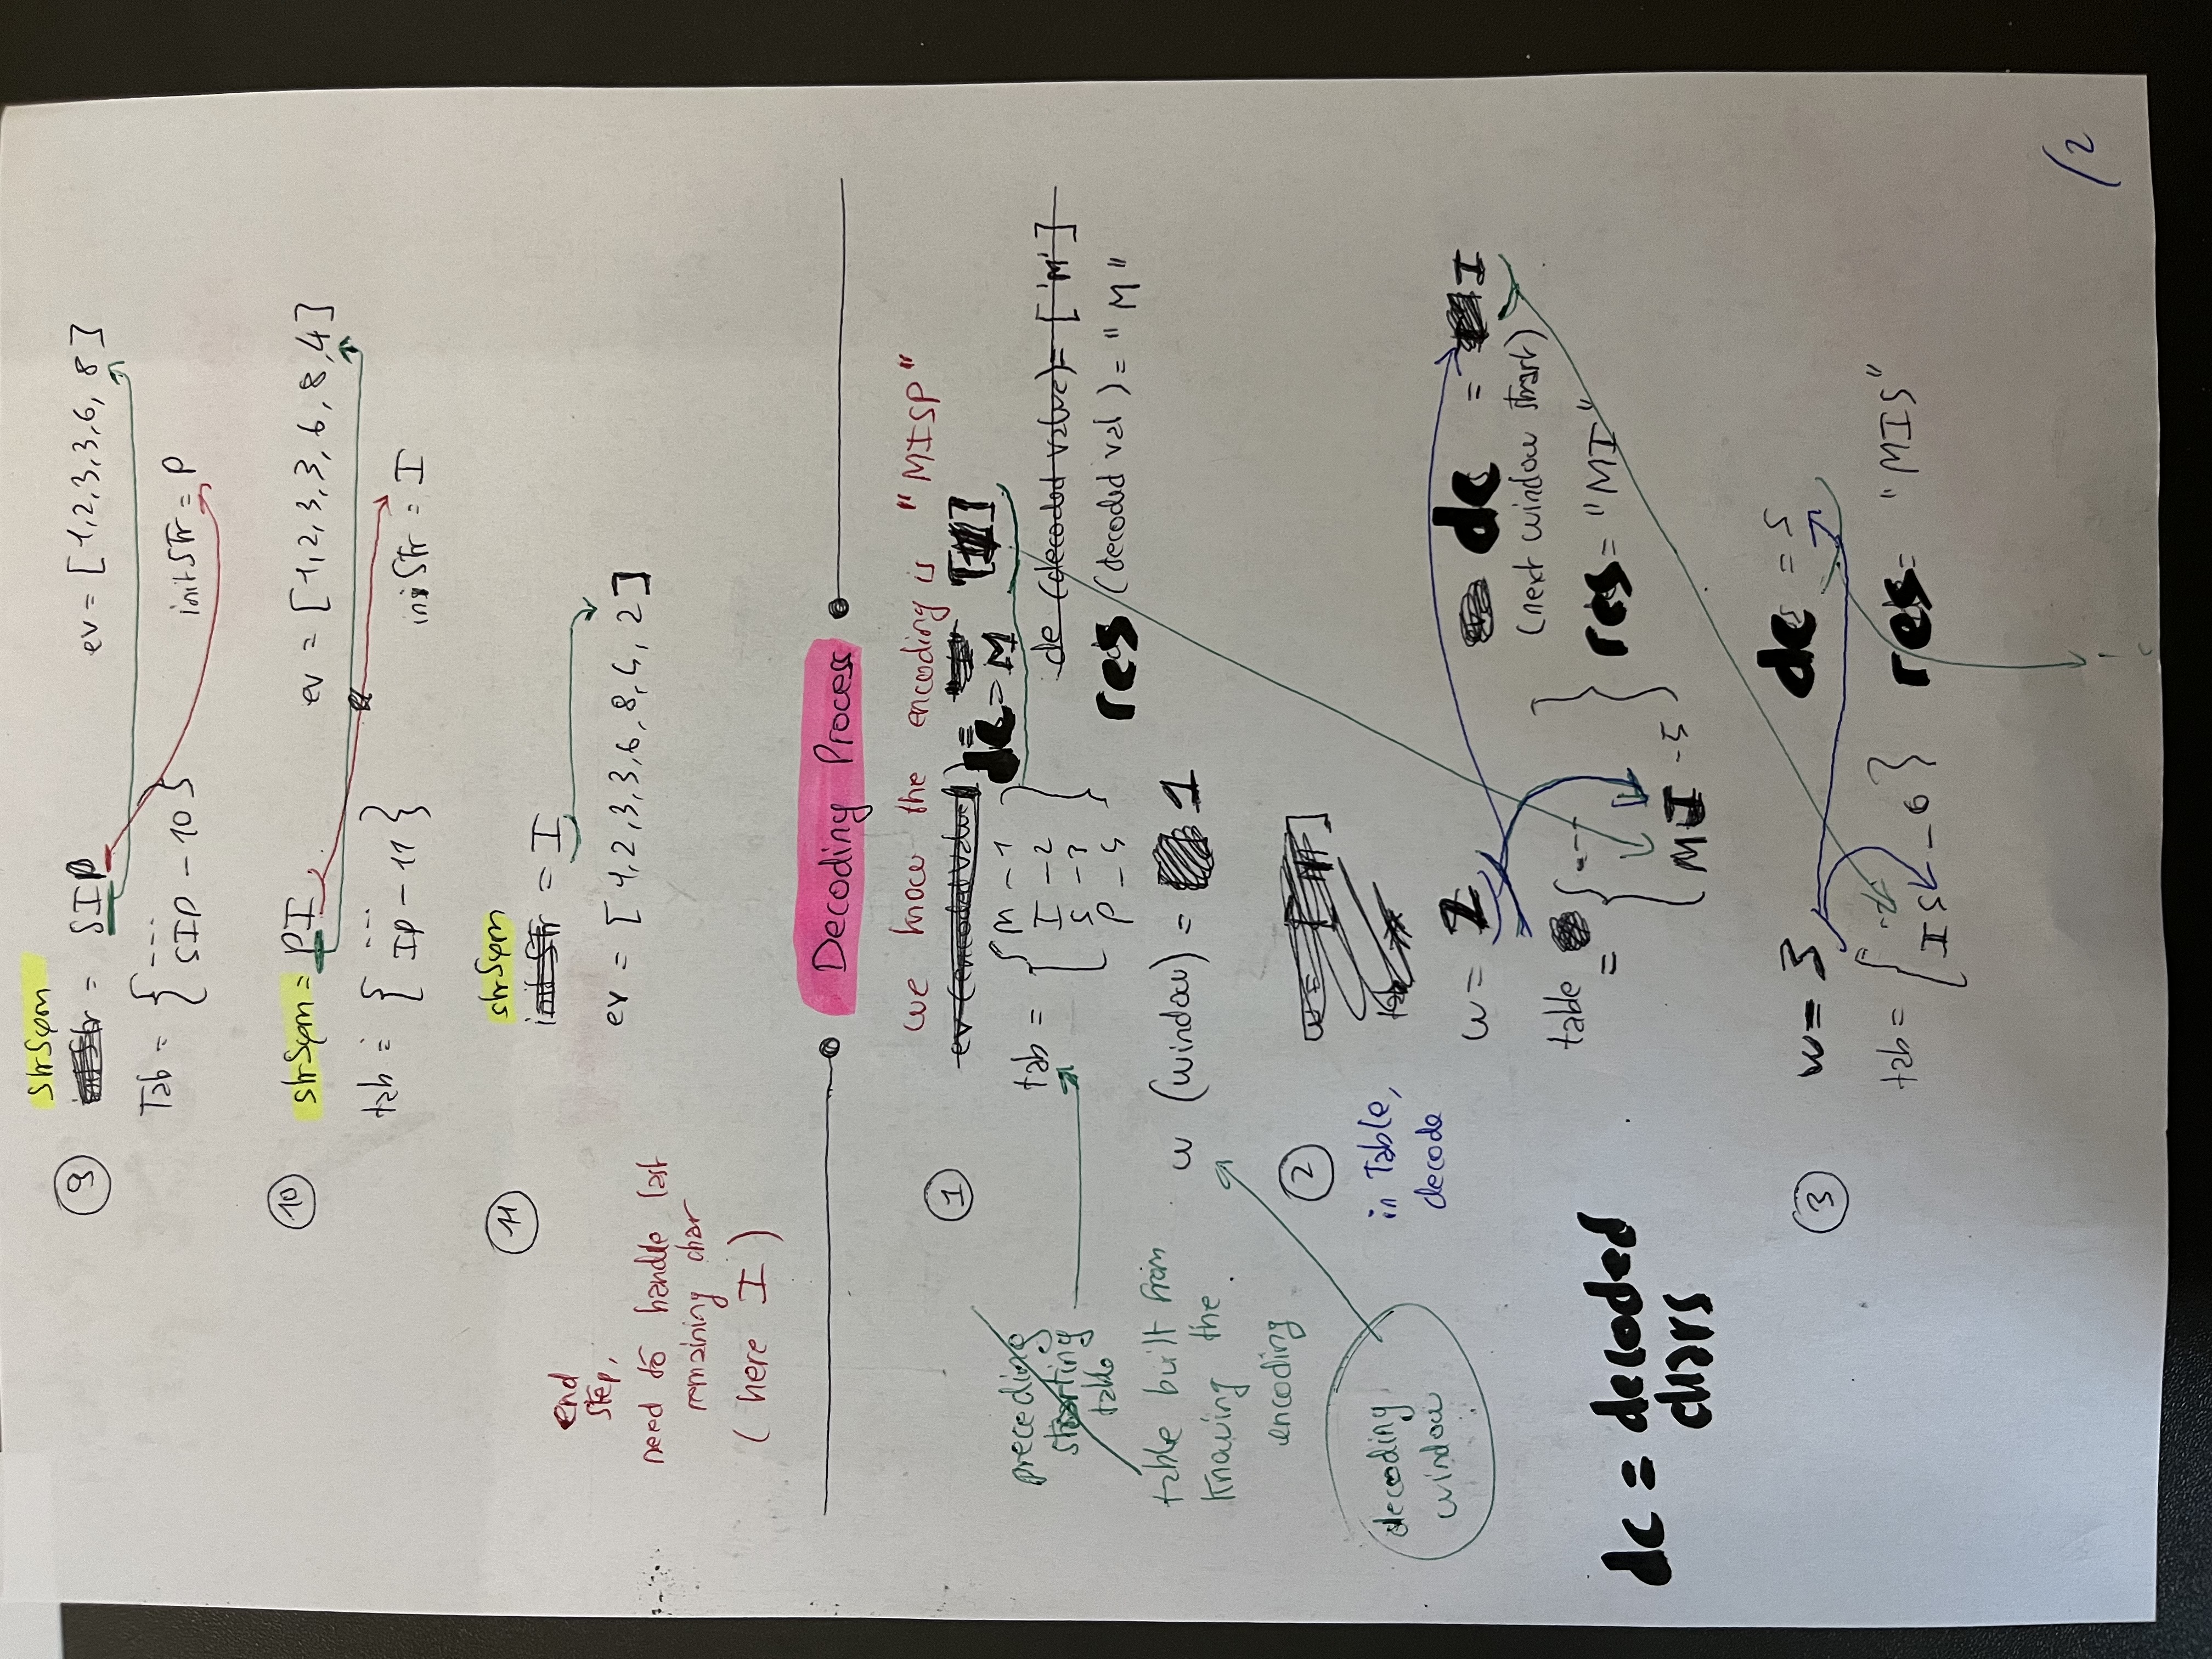 strSym
⑨ initStr = SIP ev = [1,2,3,3,6, 8]
Tab = { ---
SIP - 10 }
initSTr = P
⑩ strSym = PI ev = [1,2,3,3,6,8,4]
tab = { ---
IP - 11 }
iniSTr = I
⑪ strSym
initStr = I
end
step,
ev = [1,2,3,3,6,8,4, 2]
need to handle last
remaining char
(here I)
Decoding Process
we know the encoding is "MISP"
① ev (encoded value) =
dc = M
preceding
starting
table
tab = { M - 1
I - 2
S - 3
P - 4 }
de (decoded value) = ['M']
res (decoded val) = "M"
table built from
knowing the
encoding
w (window) = 1
② w = [M]
decoding
window
in Table,
decode
w = 2 dc = I
(next window start)
table = { ---
MI - 5 }
res = "MI"
dc = decoded
chars
③ w = 3 dc = S
tab = { ---
IS - 6 }
res = "MIS"
/2